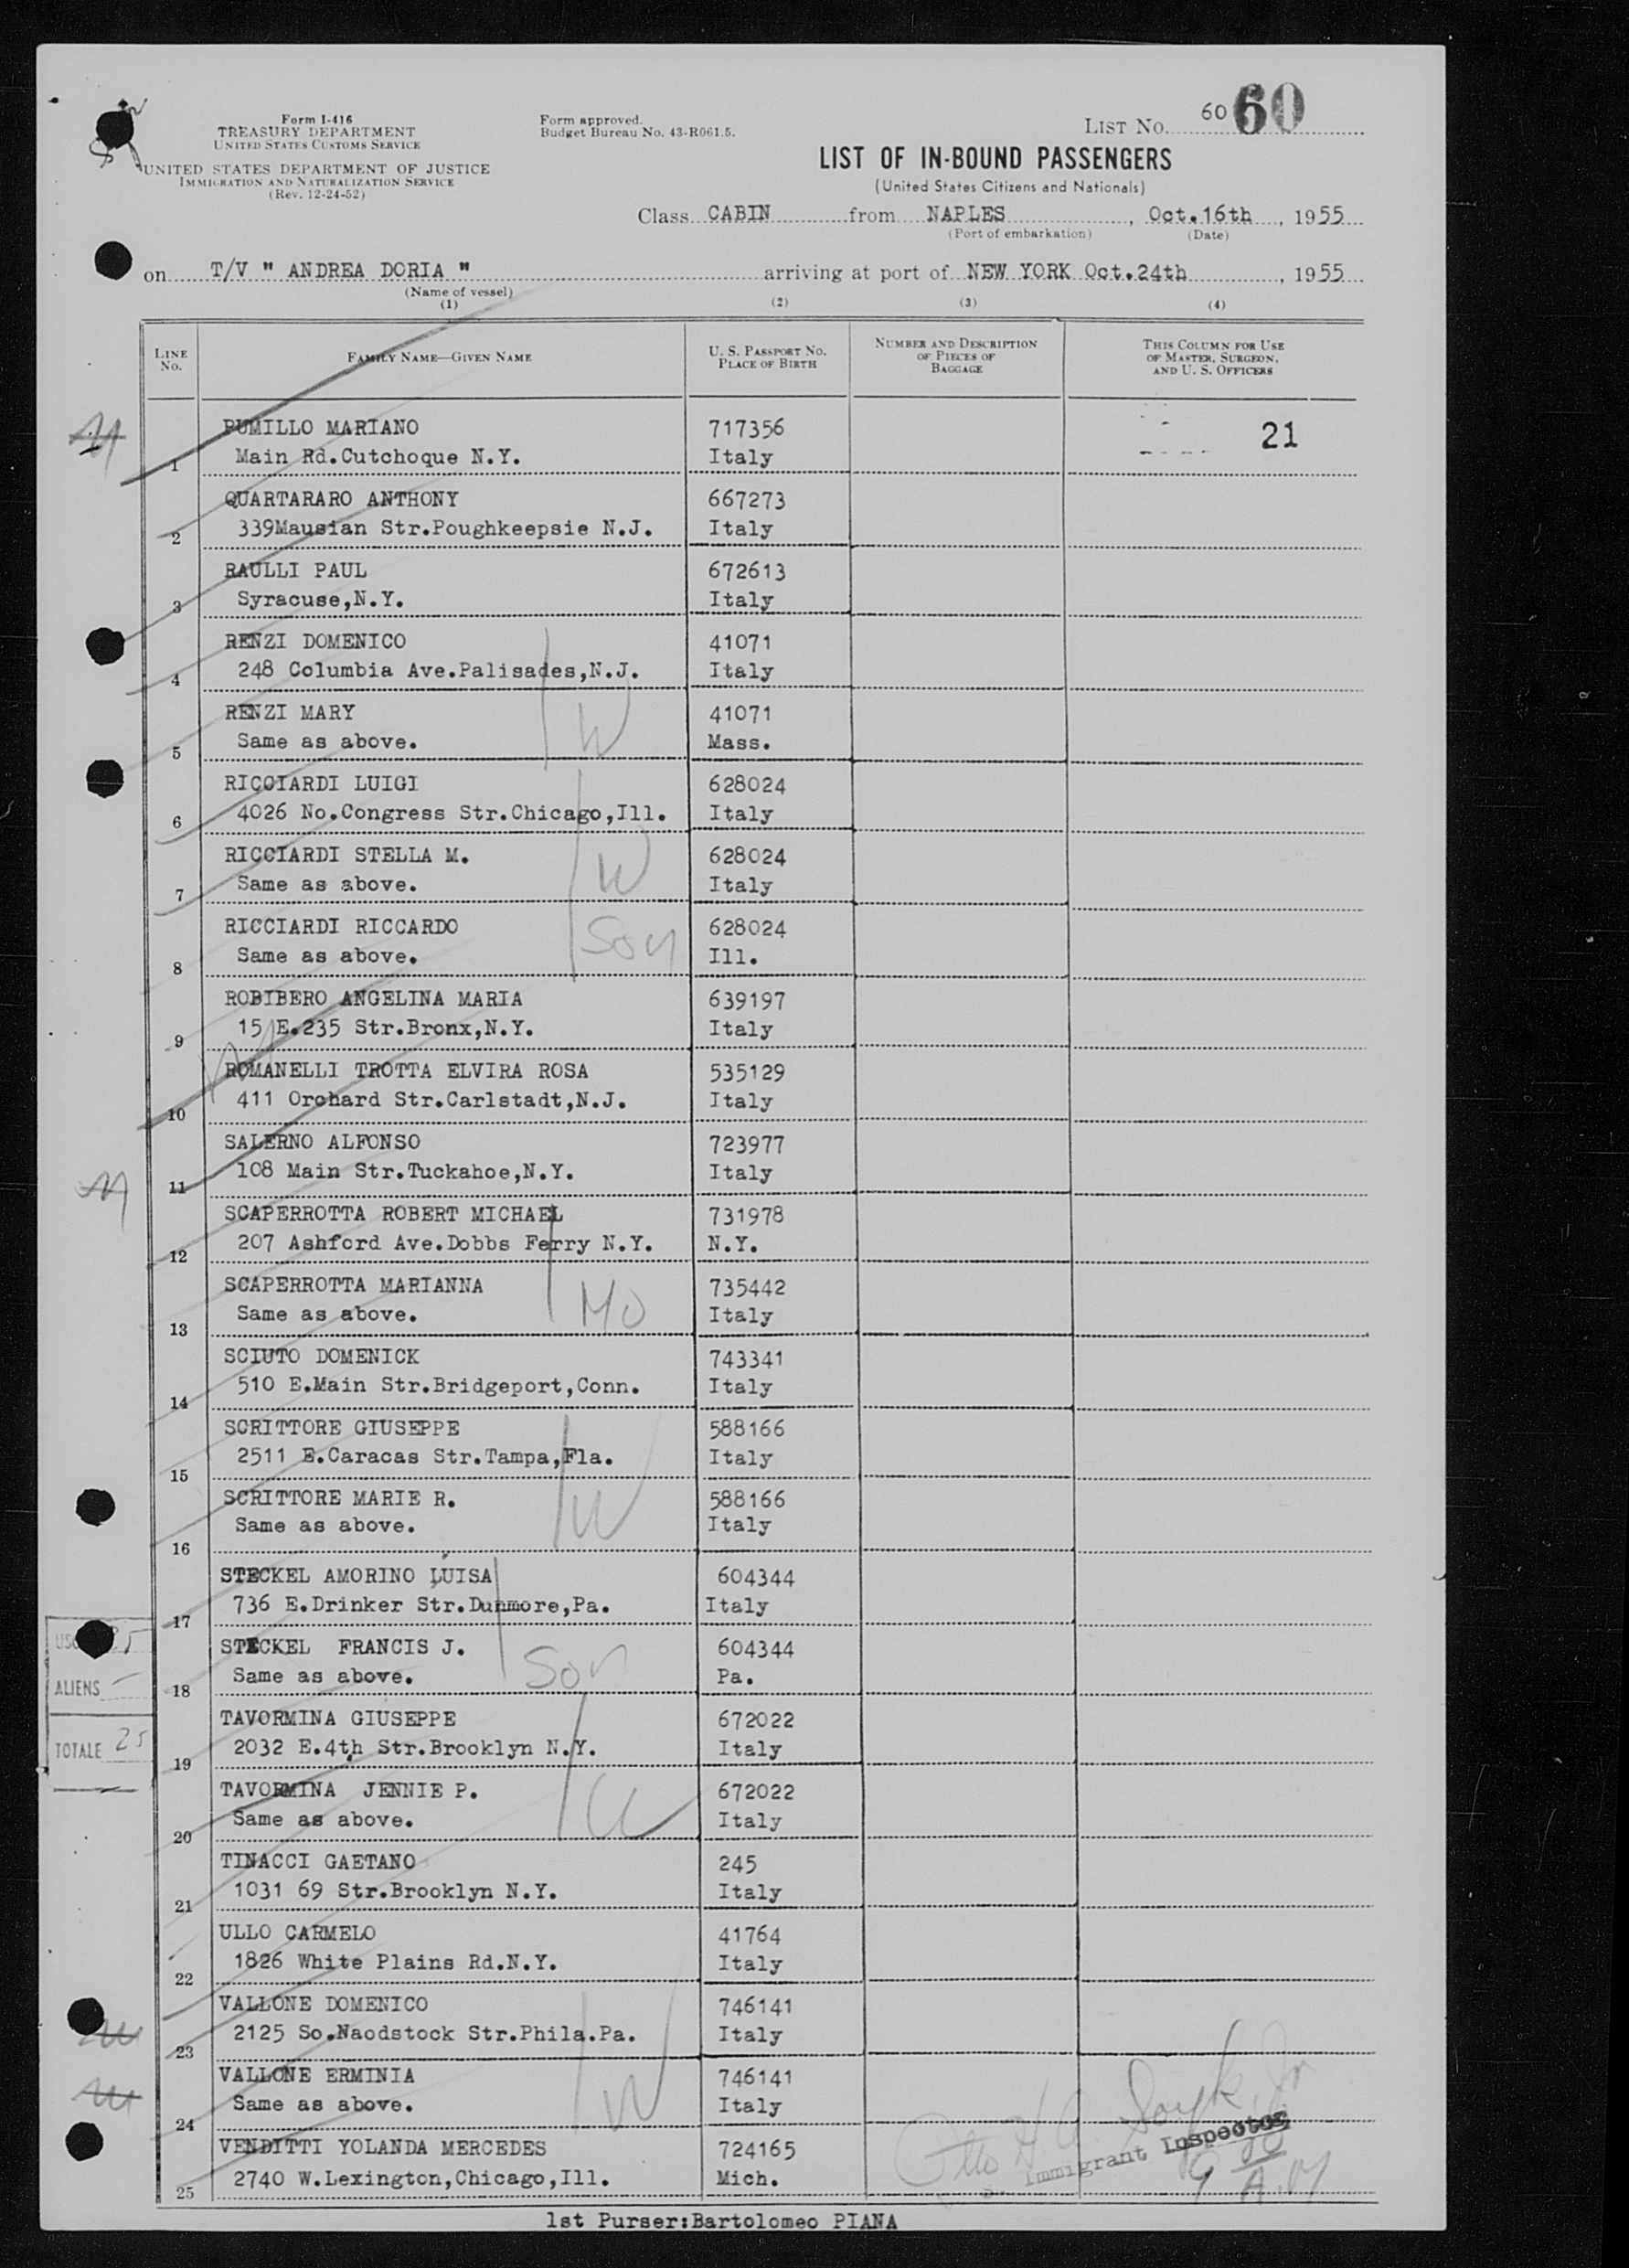 Form I-416
TREASURY DEPARTMENT
UNITED STATES CUSTOMS SERVICE
UNITED STATES DEPARTMENT OF JUSTICE
IMMIGRATION AND NATURALIZATION SERVICE
(Rev. 12-24-52)
Form approved.
Budget Bureau No. 43-R061.5.
LIST No. 60 60
LIST OF IN-BOUND PASSENGERS
(United States Citizens and Nationals)
Class CABIN from NAPLES, Oct.16th, 1955
(Port of embarkation) (Date)
on T/V " ANDREA DORIA " arriving at port of NEW YORK Oct.24th, 1955
(Name of vessel)
(1) (2) (3) (4)
LINE No. FAMILY NAME—GIVEN NAME U. S. PASSPORT No. PLACE OF BIRTH NUMBER AND DESCRIPTION OF PIECES OF BAGGAGE THIS COLUMN FOR USE OF MASTER, SURGEON, AND U. S. OFFICERS
PUMILLO MARIANO 717356 21
1 Main Rd.Cutchoque N.Y. Italy
QUARTARARO ANTHONY 667273
2 339Mausian Str.Poughkeepsie N.J. Italy
RAULLI PAUL 672613
3 Syracuse,N.Y. Italy
RENZI DOMENICO 41071
4 248 Columbia Ave.Palisades,N.J. Italy
RENZI MARY W 41071
5 Same as above. Mass.
RICCIARDI LUIGI 628024
6 4026 No.Congress Str.Chicago,Ill. Italy
RICCIARDI STELLA M. W 628024
7 Same as above. Italy
RICCIARDI RICCARDO Son 628024
8 Same as above. Ill.
ROBIBERO ANGELINA MARIA 639197
9 15 E.235 Str.Bronx,N.Y. Italy
ROMANELLI TROTTA ELVIRA ROSA 535129
10 411 Orchard Str.Carlstadt,N.J. Italy
SALERNO ALFONSO 723977
11 108 Main Str.Tuckahoe,N.Y. Italy
SCAPERROTTA ROBERT MICHAEL 731978
12 207 Ashford Ave.Dobbs Ferry N.Y. N.Y.
SCAPERROTTA MARIANNA Mo 735442
13 Same as above. Italy
SCIUTO DOMENICK 743341
14 510 E.Main Str.Bridgeport,Conn. Italy
SCRITTORE GIUSEPPE 588166
15 2511 E.Caracas Str.Tampa,Fla. Italy
SCRITTORE MARIE R. W 588166
16 Same as above. Italy
STECKEL AMORINO LUISA 604344
17 736 E.Drinker Str.Dunmore,Pa. Italy
STECKEL FRANCIS J. Son 604344
18 Same as above. Pa.
ALIENS
TAVORMINA GIUSEPPE 672022
19 2032 E.4th Str.Brooklyn N.Y. Italy
TOTALE 25
TAVORMINA JENNIE P. W 672022
20 Same as above. Italy
TINACCI GAETANO 245
21 1031 69 Str.Brooklyn N.Y. Italy
ULLO CARMELO 41764
22 1826 White Plains Rd.N.Y. Italy
VALLONE DOMENICO 746141
23 2125 So.Naodstock Str.Phila.Pa. Italy
VALLONE ERMINIA W 746141
24 Same as above. Italy
VENDITTI YOLANDA MERCEDES 724165
25 2740 W.Lexington,Chicago,Ill. Mich.
Immigrant Inspector
1st Purser:Bartolomeo PIANA